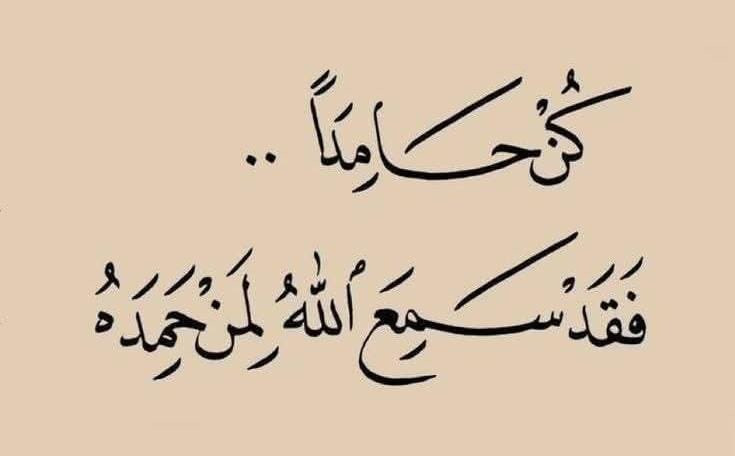 كُنْ حَامِدَاً ..
فَقَدْ سَمِعَ ٱللّٰهُ لِمَنْ حَمِدَهُ